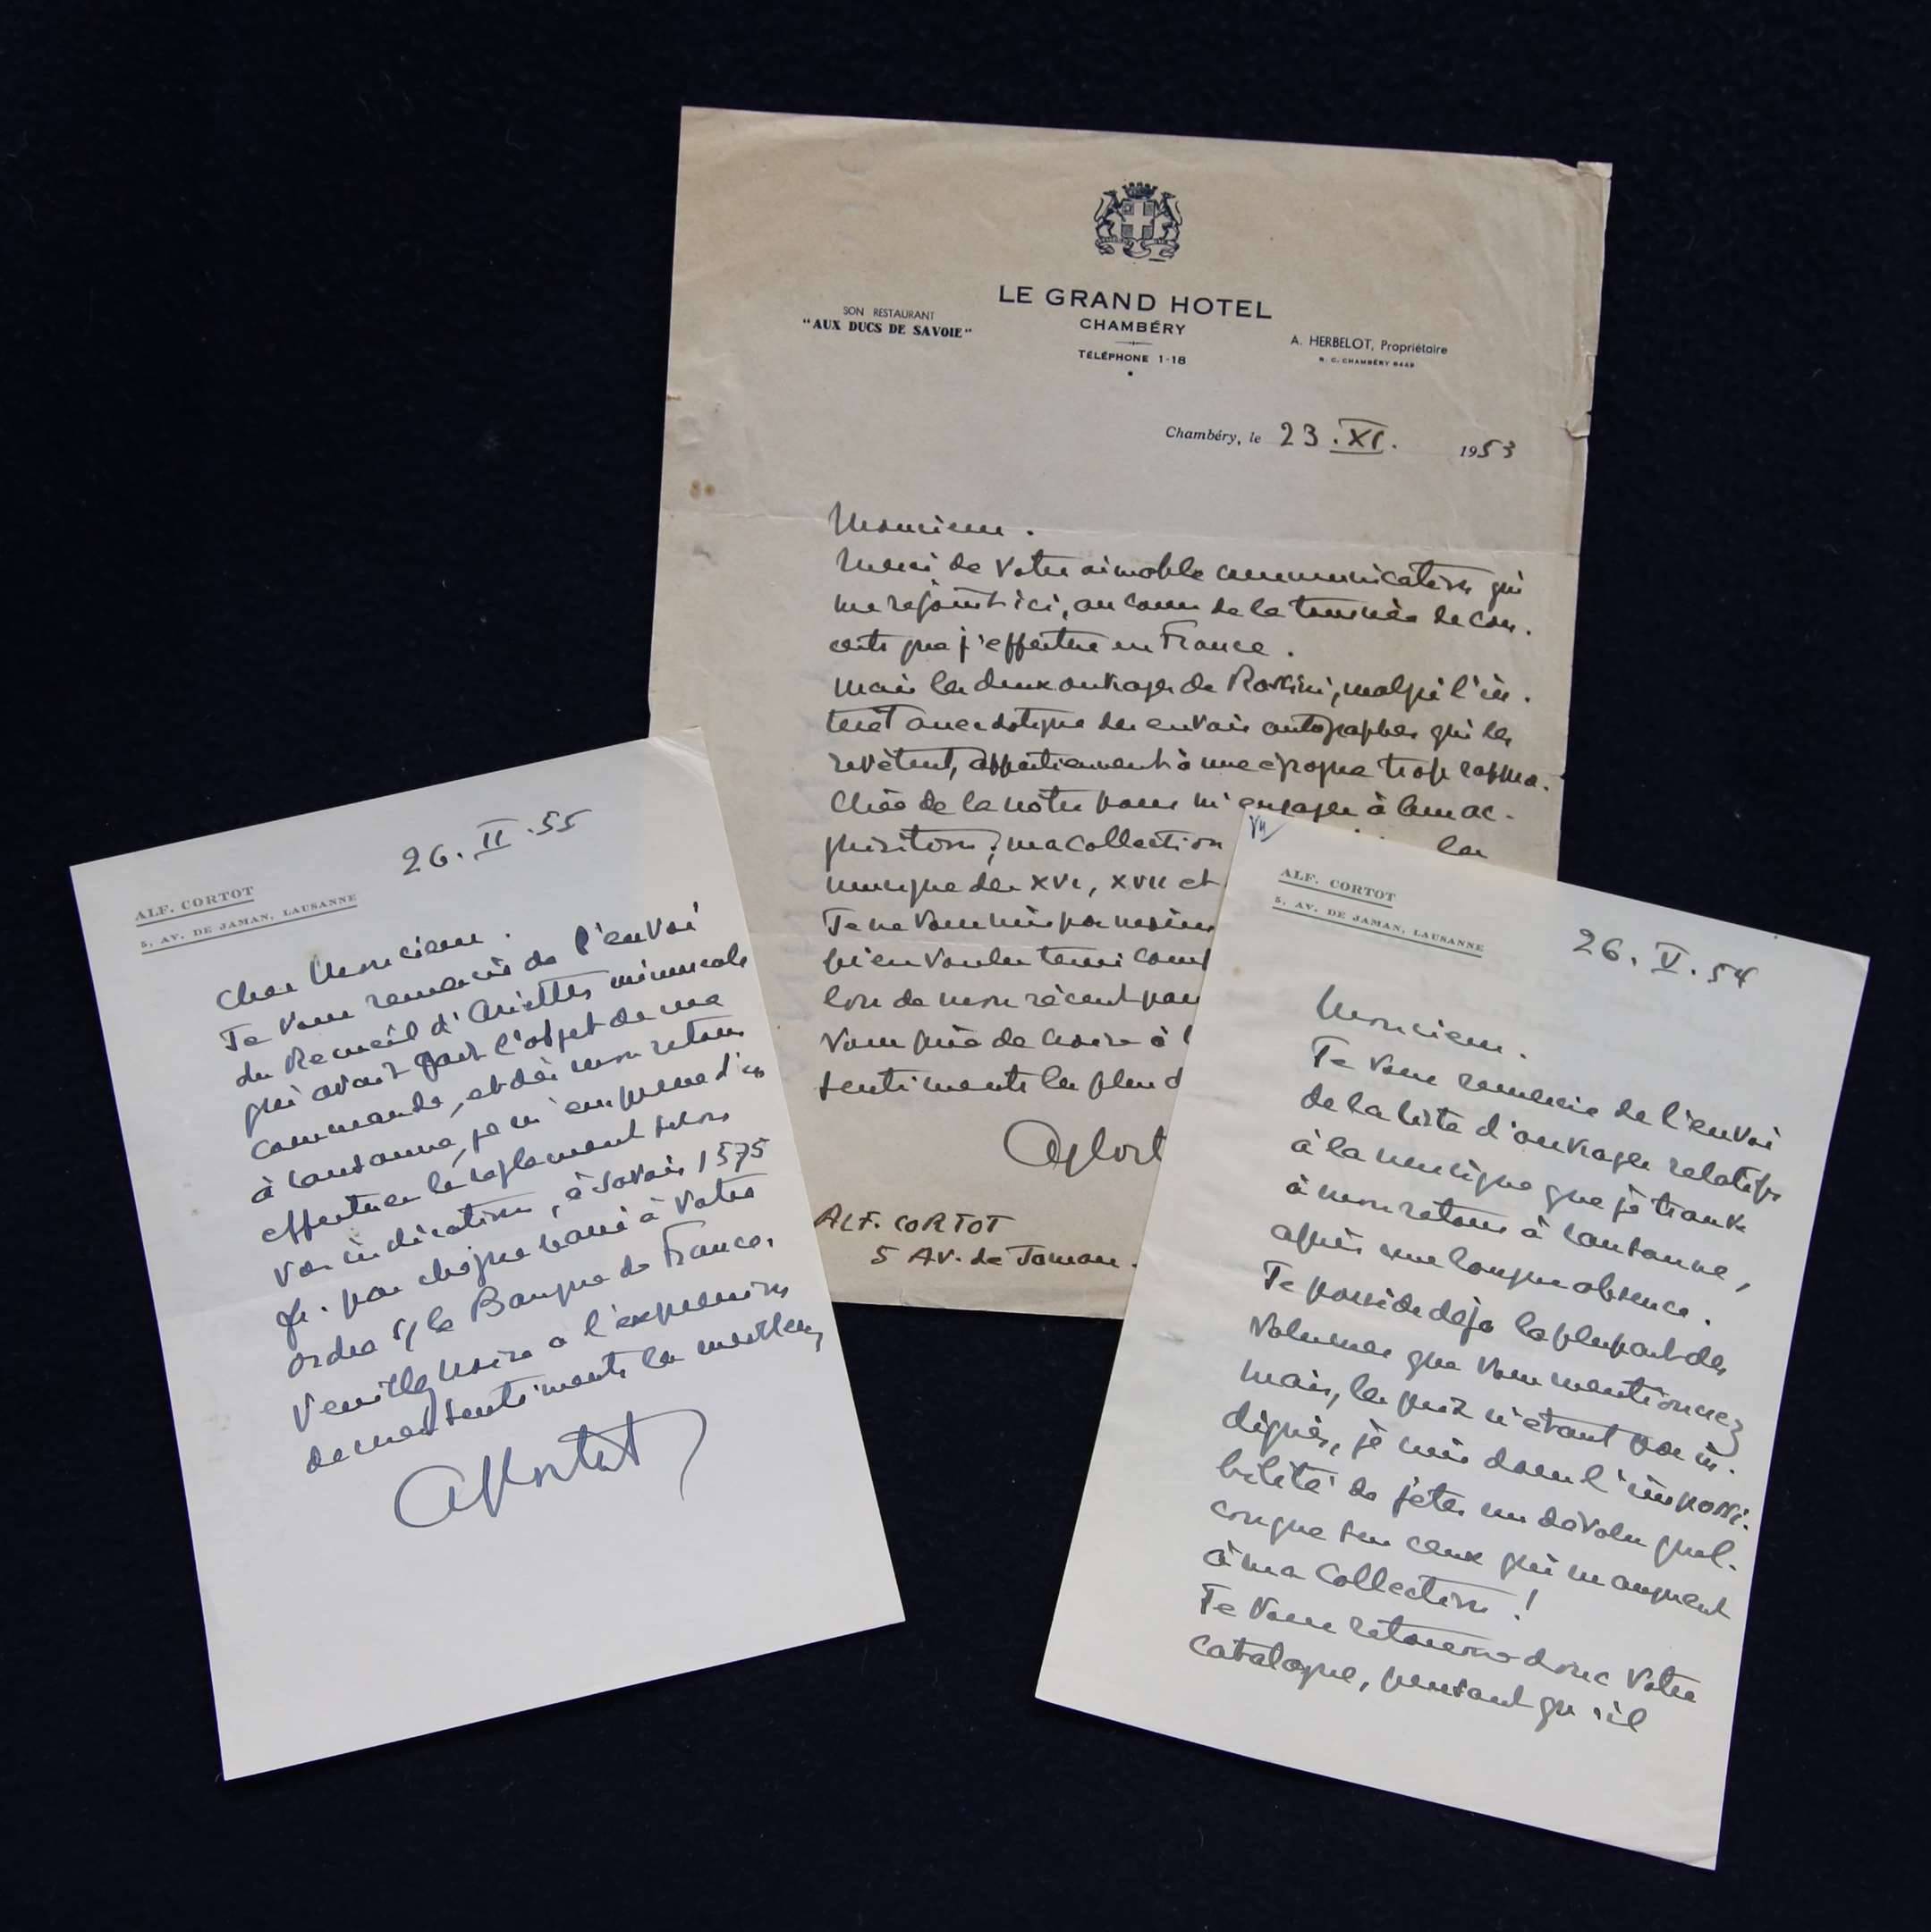 LE GRAND HOTEL
CHAMBÉRY
TÉLÉPHONE 1-18
SON RESTAURANT
"AUX DUCS DE SAVOIE"
A. HERBELOT, Propriétaire
R. C. CHAMBÉRY
Chambéry, le 23.XI. 1953
Monsieur.
Merci de votre aimable communication qui
me rejoint ici, au cours de la tournée de con.
certs que j'effectue en France.
Mais les deux ouvrages de Rossini, malgré l'in.
térêt anecdotique des envois autographes qui les
revêtent, appartiennent à une époque trop rappro.
chée de la nôtre pour m'engager à leur ac-
quisition; ma collection
les
musique des XVI, XVII et
Je ne vous suis pas moins
bien voulu tenir
lors de mon récent
vous prie de croire à
sentiments les plus d
ACort
ALF. CORTOT
5 AV. de Jaman.
26.II.55
ALF. CORTOT
5, AV. DE JAMAN, LAUSANNE
Cher Monsieur.
Je vous remercie de l'envoi
du Recueil d'Ariettes
qui avait fait l'objet de ma
commande, et dès mon retour
à Lausanne, je m'empresse d'en
effectuer le règlement selon
vos indications, à savoir 1575
fr. par chèque barré à votre
ordre s/ la Banque de France.
Veuillez croire à l'expression
de mes sentiments les meilleurs
ACortot
ALF. CORTOT
5, AV. DE JAMAN, LAUSANNE
26.V.54
Monsieur.
Je vous remercie de l'envoi
de la liste d'ouvrages relatifs
à la musique que je trouve
à mon retour à Lausanne,
après une longue absence.
Je possède déjà la plupart des
volumes que vous mentionnez
mais, les prix n'étant pas in.
diqués, je suis dans l'impossi.
bilité de jeter un dévolu quel.
conque sur ceux qui manquent
à ma collection!
Je vous retourne donc votre
catalogue, pensant qu'il